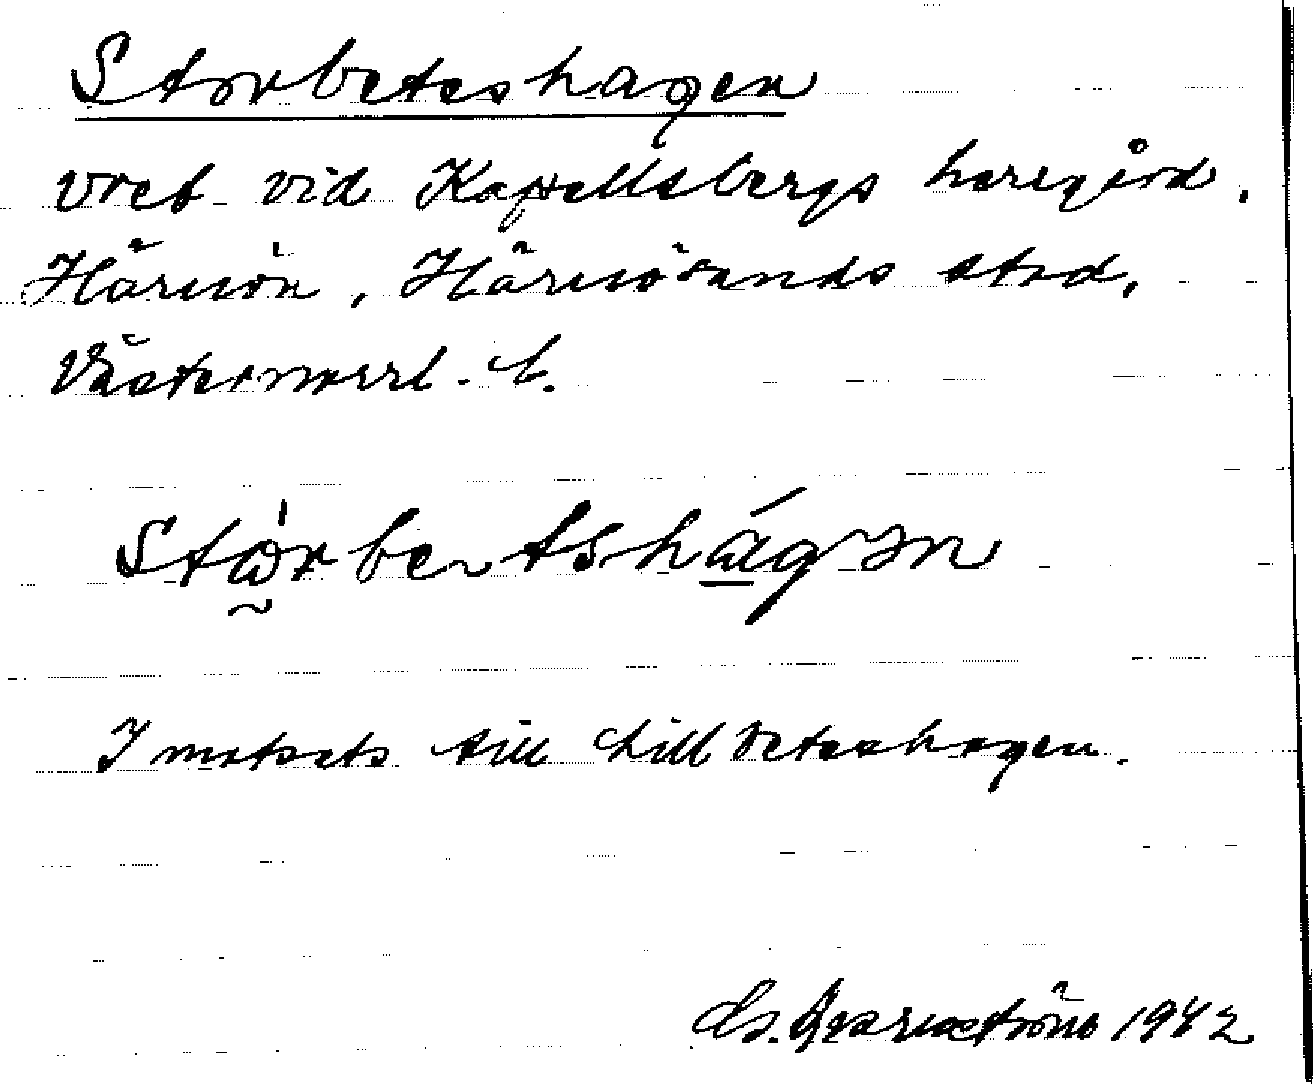 Storbeteshagen
vret vid Kapellsbergs herrgård,
Härnön, Härnösands stad,
Västernorrl. l.
Stòrbetshágen
I motsats till Lillbeteshagen.
1942